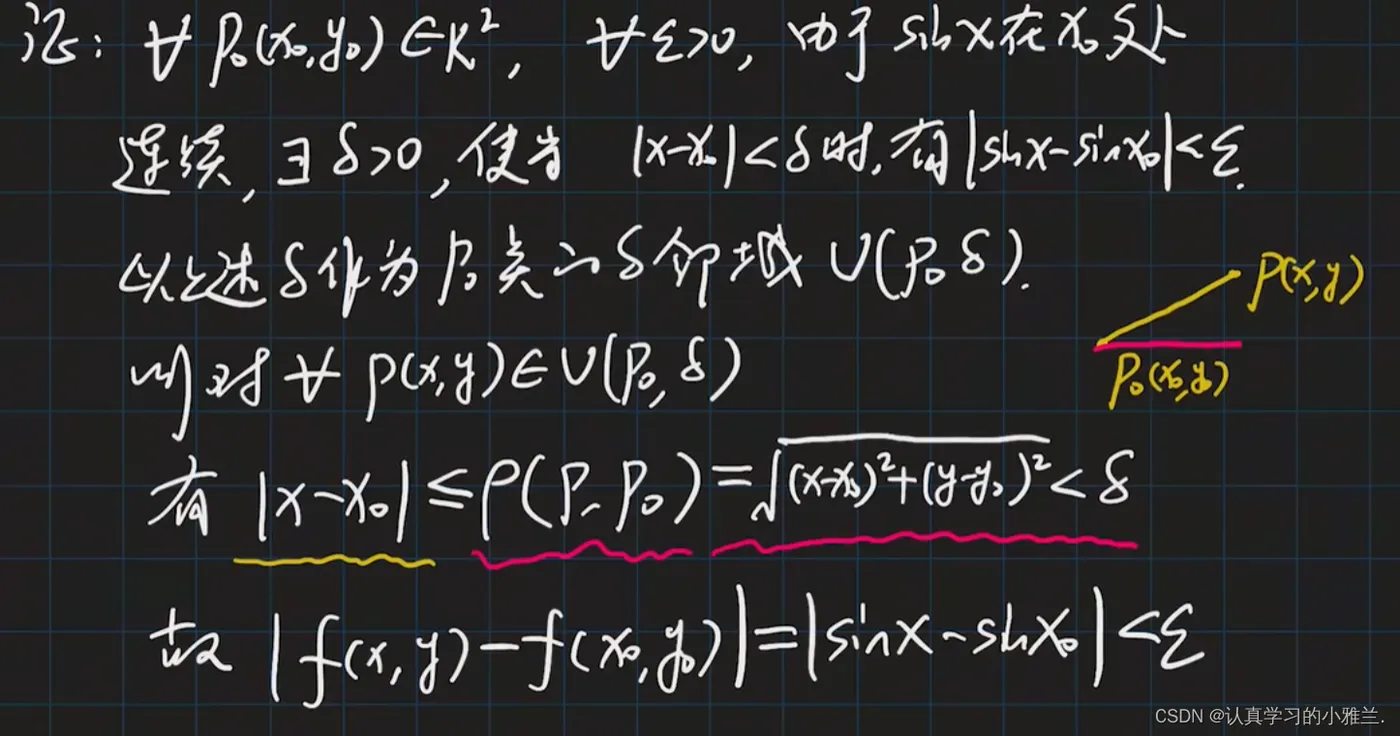 证: ∀ P₀(x₀,y₀)∈R², ∀ε>0, 由于 sinx在x₀处
连续, ∃ δ>0, 使当 |x-x₀|<δ时, 有|sinx-sinx₀|<ε.
以上述 δ作为 P₀点的δ邻域 U(P₀ δ).
则对 ∀ P(x,y)∈U(P₀, δ)
P(x,y)
P₀(x₀,y₀)
有 |x-x₀|≤ρ(P, P₀)=√(x-x₀)²+(y-y₀)²<δ
故 |f(x,y)-f(x₀,y₀)|=|sinx-sinx₀|<ε
CSDN @认真学习的小雅兰.